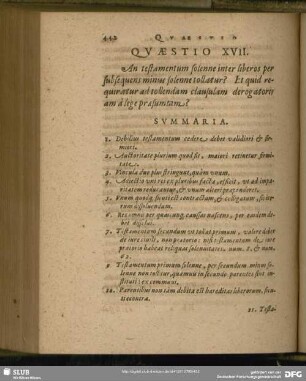 442 QVAESTIO
QVÆSTIO XVII.
An testamentum solenne inter liberos per
subsequens minus solenne tollatur? Et quid re-
quiratur ad tollendam clausulam derogatori
am à lege præsumtam?
SVMMARIA.
1. Debilius testamentum cedere debet validiori & fir-
miori.
2. Auctoritate plurium quod fit, maiori retinetur firmi-
tate.
3. Vincula duo plus stringunt, quàm unum.
4. Adiectio vnius ex pluribus facta, efficit, vt ad
5. Vnum quodq; sicuti est contractum, & colligatum, ita
dissoluendum.
6. Res per quascunq; causas nascens, per easdem
debet
7. Testamentum secundum vt tollat primum, valere debet
de iure ciuili, non prætorio: nisi testamentum &c. iure
prætorio habeat reliquas solennitates. num. 8. &
8 Testamentum primum solenne, per secundum minus so-
lenne non tollitur, quamuis in secundo parentes sint in-
stituti: ex communi.
10. Parentibus non tam debita est hæreditas liberorum,
econuerra.
11. Testa-